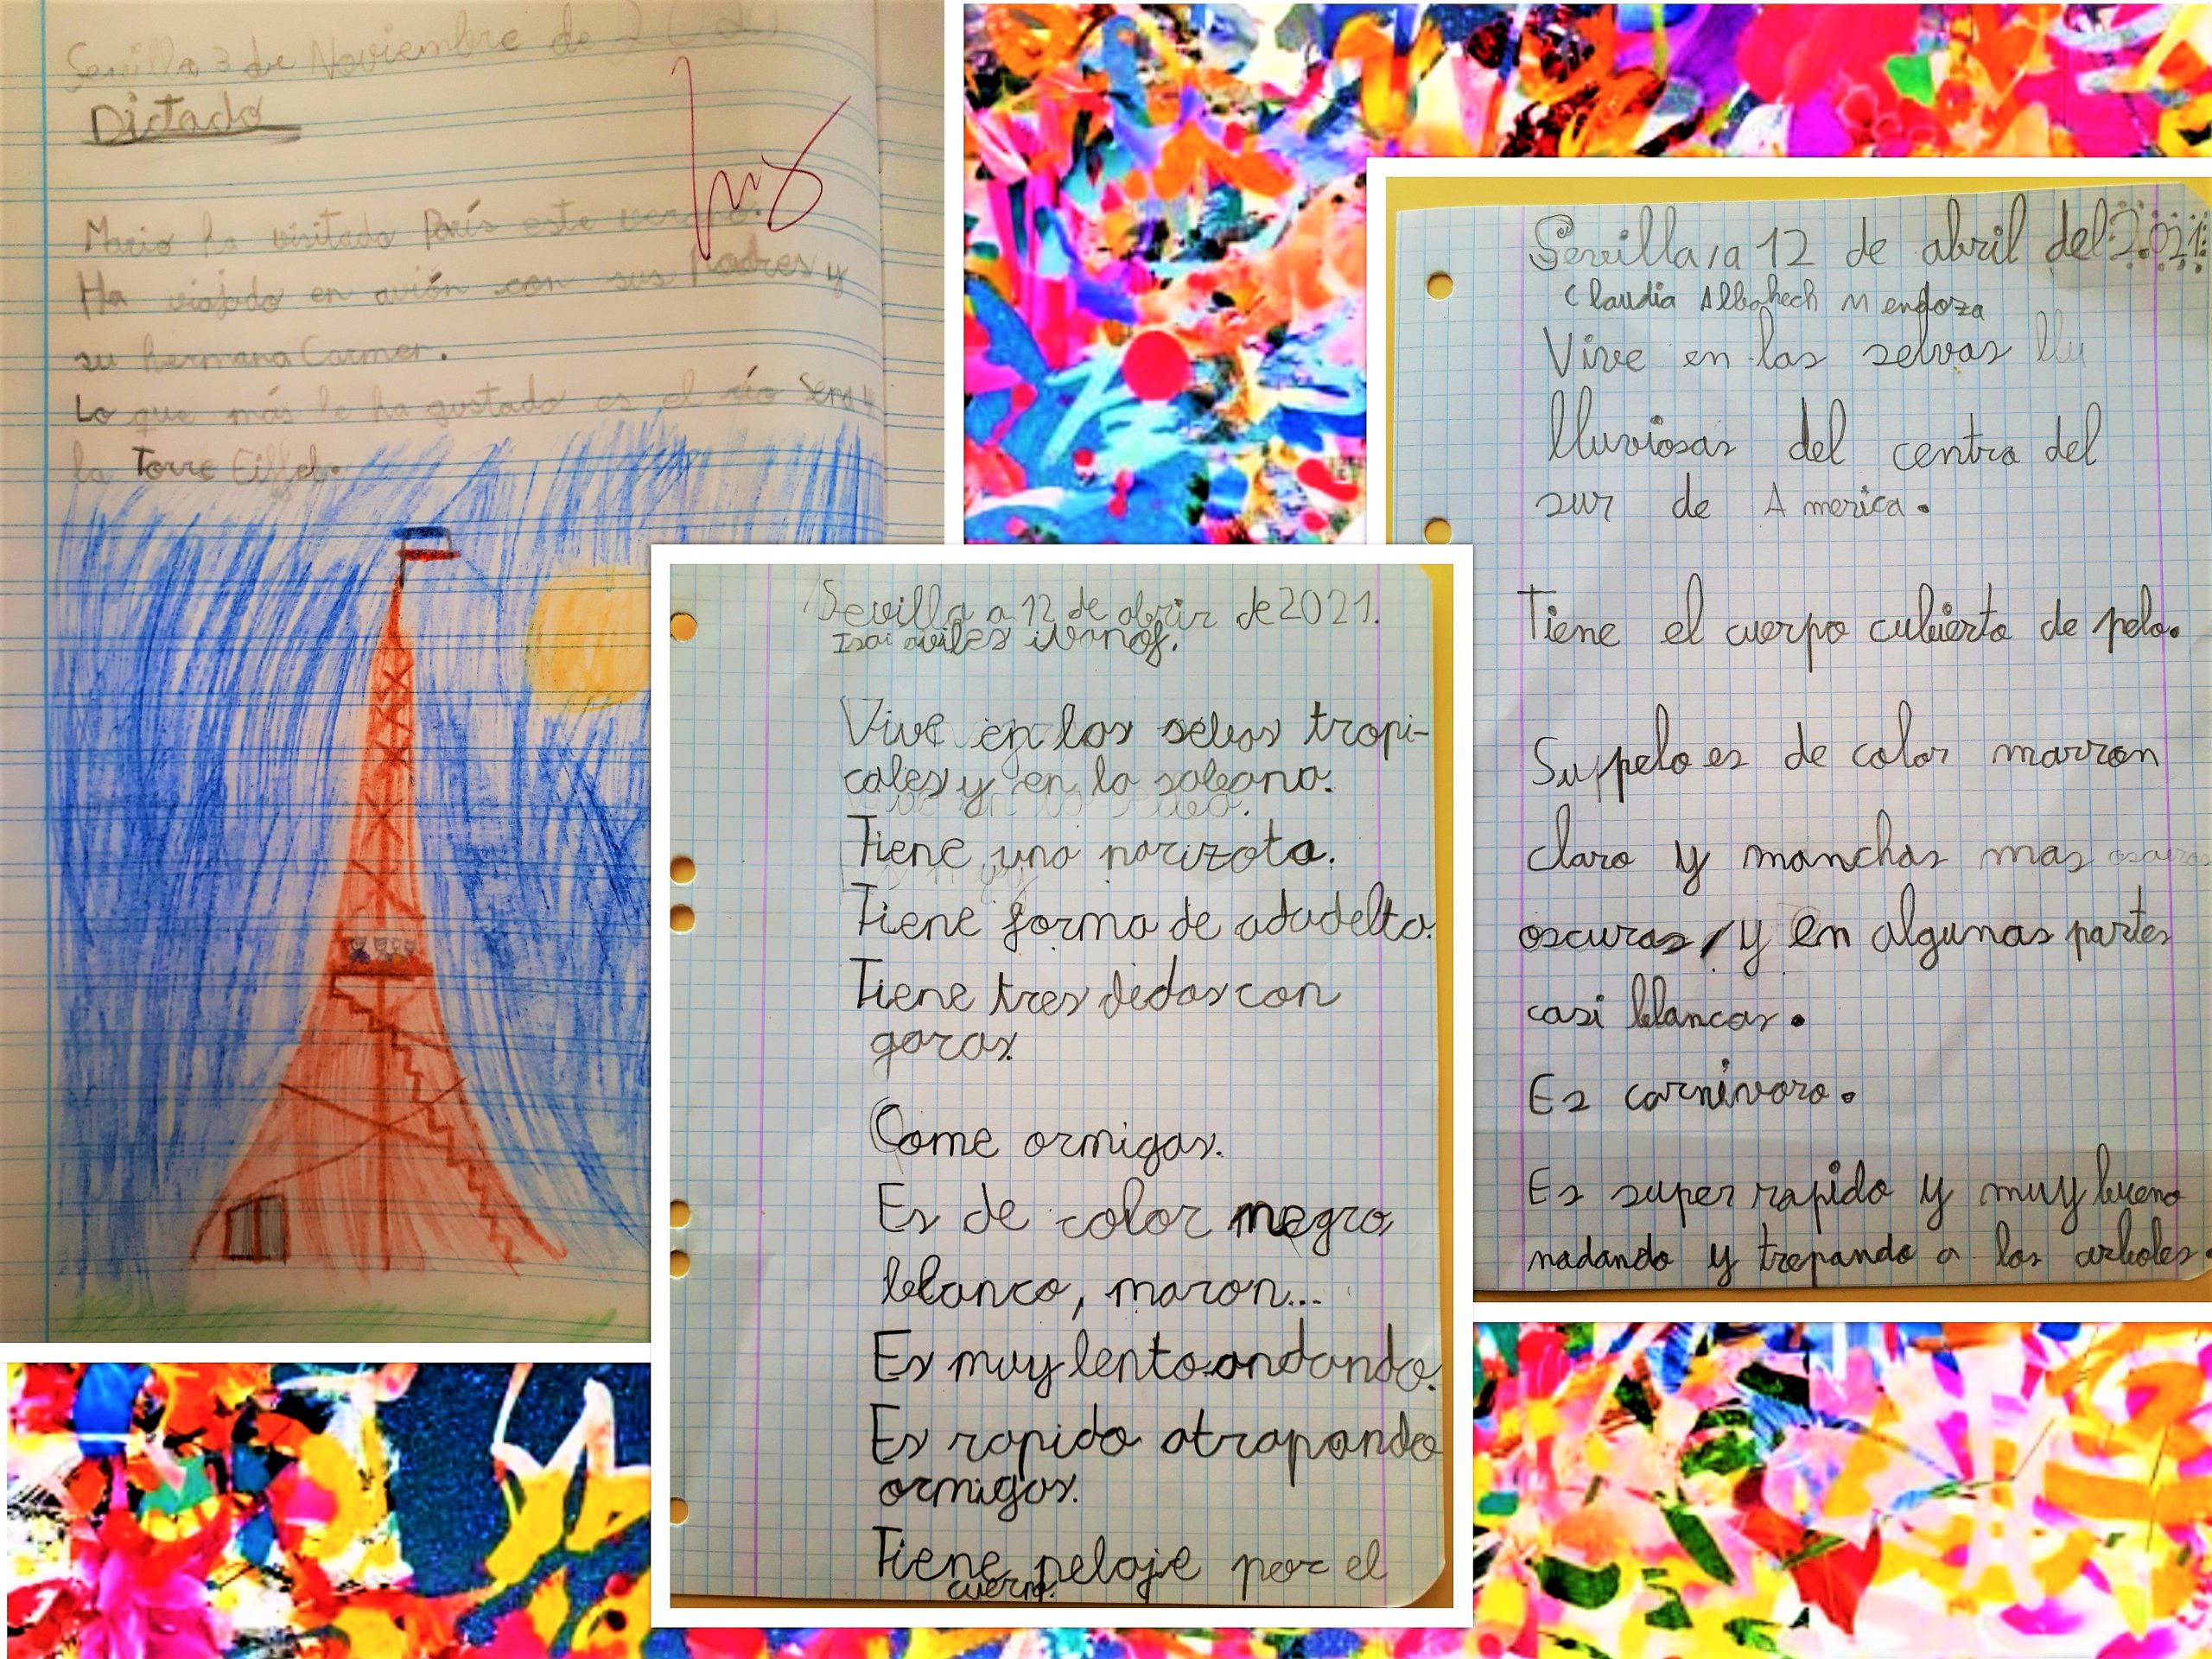 Sevilla 3 de Noviembre de 2020
Dictado
Mario ha visitado París este verano.
Ha viajado en avión con sus Padres y
su hermana Carmen.
Lo que más le ha gustado es el río Sena y
la Torre Eiffel.
Sevilla a 12 de abrir de 2021.
Isai aviles ivanof.
Vive en las selvas tropi-
cales y en la sabana.
Tiene una narizota.
Tiene forma de aladelta.
Tiene tres dedos con
garas.
Come ormigas.
Es de color negro,
blanco, maron...
Es muy lento andando.
Es rapido atrapando
ormigas.
Tiene pelaje por el
cuerpo.
Sevilla, a 12 de abril del 2.021.
Claudia Mendoza
Vive en las selvas llu
lluviosas del centro del
sur de America.
Tiene el cuerpo cubierto de pelo.
Su pelo es de color marron
claro y manchas mas oscuras
oscuras, y en algunas partes
casi blancas.
Es carnivoro.
Es super rapido y muy bueno
nadando y trepando a los arboles.